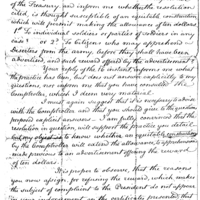 of the Treasury and inform me whether the resolution
cited, is thought susceptible of an equitable construction
which will permit making the allowance of ten dollars
1st To individual soldiers or parties of soldiers in any
case? or 2d To citizens who may apprehend
deserters from the army, before they shall have been
advertised, and reward offered by the advertisement?
Your reply of the 1st instant informs me what
the practice has been, but does not answer explicitly to my
question, nor inform me that you have consulted the
Comptroller, which I deem very material.
I must again suggest that it is necessary to advise
with the Comptroller and that you should give to the questions
proposed explicit answers. I am fully convinced that the
resolution in question, will support the practice, in equitable
by the Comptroller will extend the allowance to apprehensions
made previous to an advertisement offering the reward
of ten dollars.
It is proper to observe, that the reasons
you now assign for refusing the reward, which make
the subject of complaint to the President do not appear
in your indorsement on the certificate presented, that